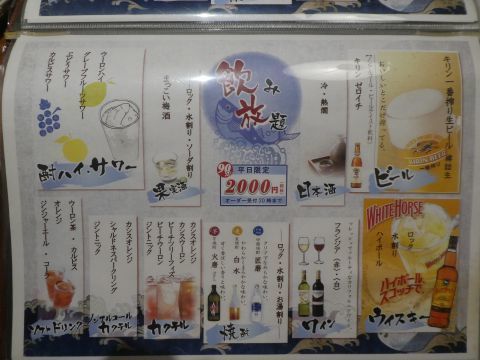 キリン一番搾り生ビール
ビール
キリン ゼロイチ
冷・熱燗
日本酒
飲み放題
平日限定
2000円
オーダー受付30時まで
ロック・水割り・ソーダ割り
まっこい梅酒
果実酒
ウーロンハイ
グレープフルーツサワー
カルピスサワー
酎ハイ・サワー
WHITE HORSE
ロック
水割り
ハイボール
ハイボール、
スコッチで
ウイスキー
フランジア(赤・白)
ワイン
ロック・水割り・お湯割り
白水
火唐
焼酎
カシスオレンジ
カシスウーロン
ピーチオレンジ
ピーチウーロン
ジントニック
カクテル
カシスオレンジ
シャルドネスパークリング
ジントニック
ノンアルコール
カクテル
ウーロン茶・カルピス
オレンジ
ジンジャーエール・コーラ
ソフトドリンク